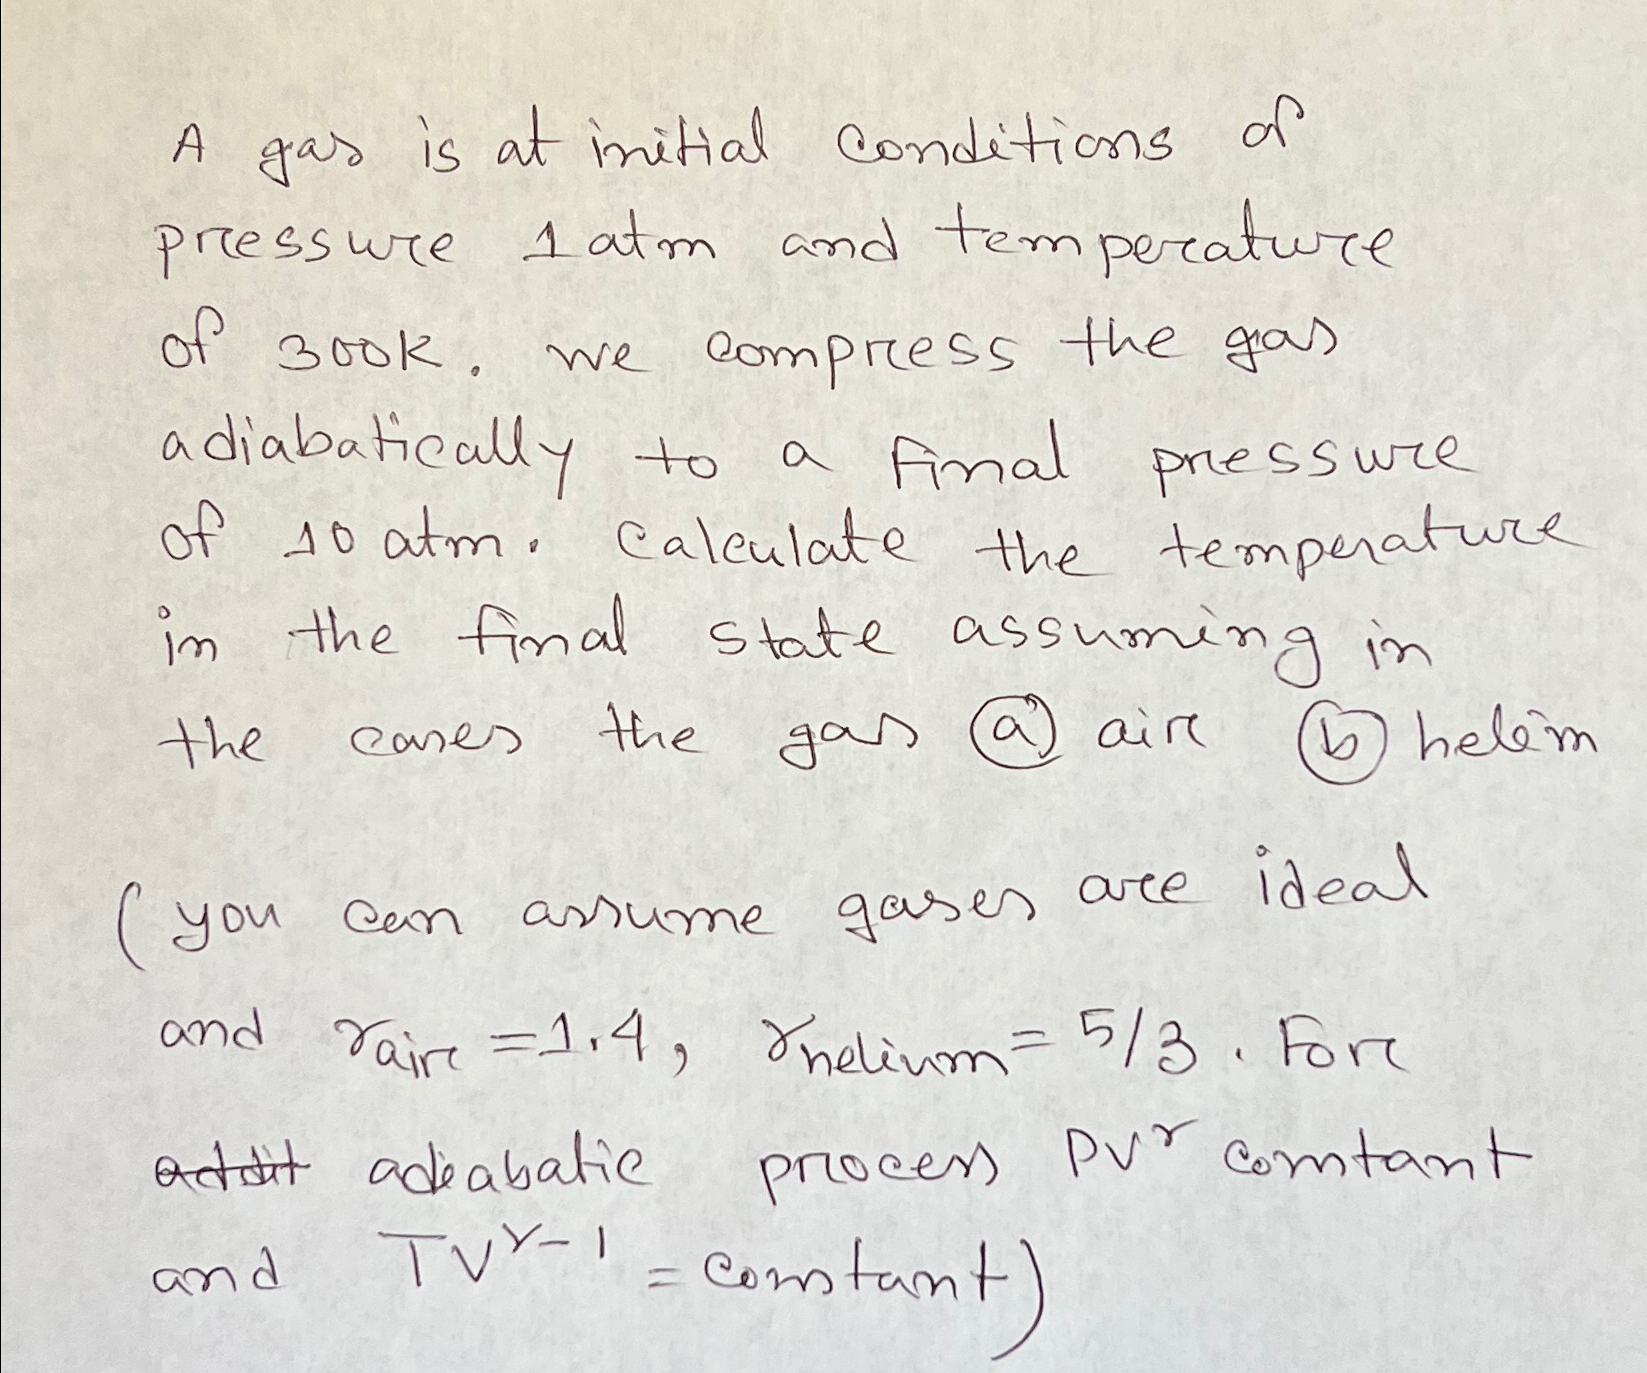 A gas is at initial conditions of
pressure 1 atm and temperature
of 300K. we compress the gas
adiabatically to a final pressure
of 10 atm. Calculate the temperature
in the final state assuming in
the cases the gas (a) air (b) helim
(you can assume gases are ideal
and γair = 1.4, γhelium = 5/3. For
addit adiabatic process PV^γ constant
and TV^γ-1 = constant)